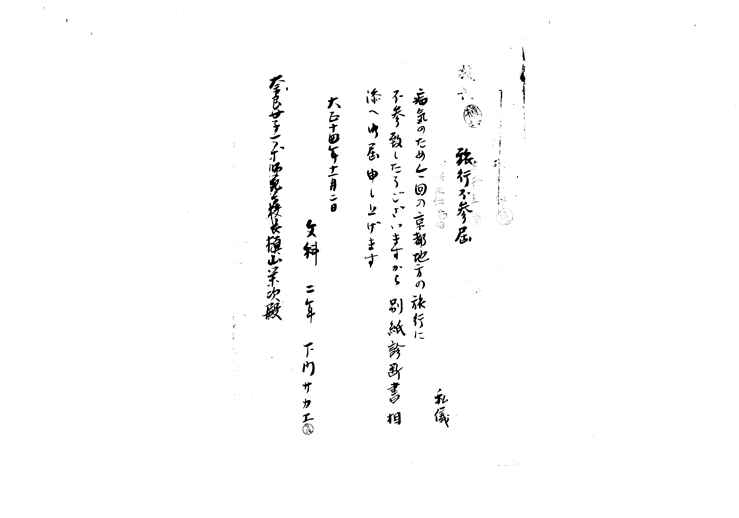 旅行不参届
私儀
病気のため今回の京都地方の旅行に
不参致したうございますから別紙診断書相
添へ御届申し上げます
大正十四年十一月二日
文科 二年 下門サカエ
奈良女子高等師範学校長槇山栄次殿